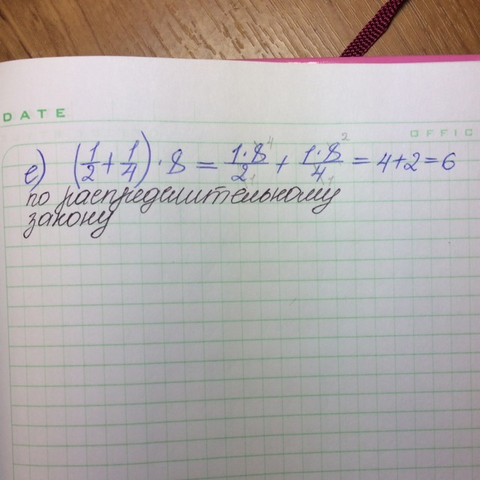 DATE
OFFIC
е) (1/2 + 1/4) · 8 = 1·8/2 + 1·8/4 = 4+2=6
по распределительному
закону